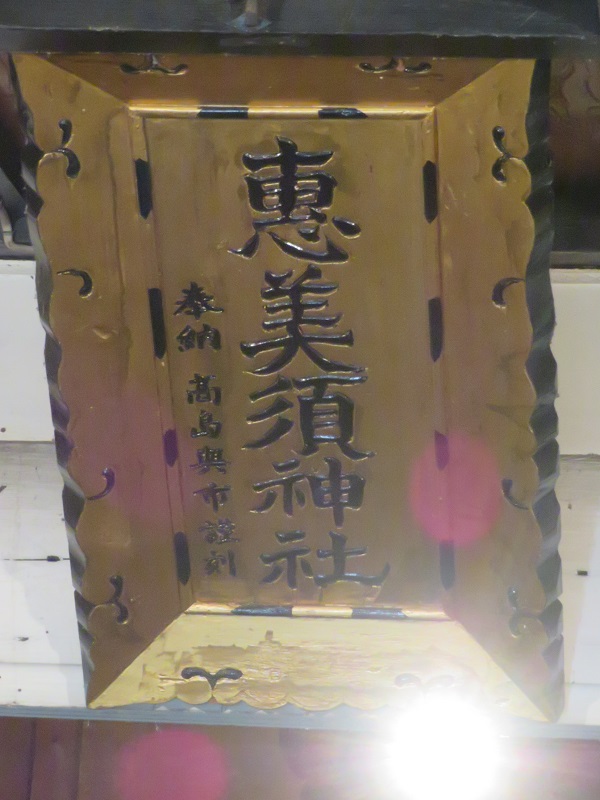 惠美須神社
奉納 髙島與市謹刻